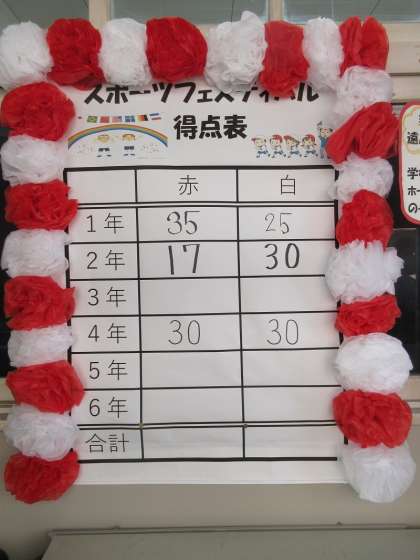 スポーツフェスティバル
得点表
赤 白
1年 35 25
2年 17 30
3年
4年 30 30
5年
6年
合計